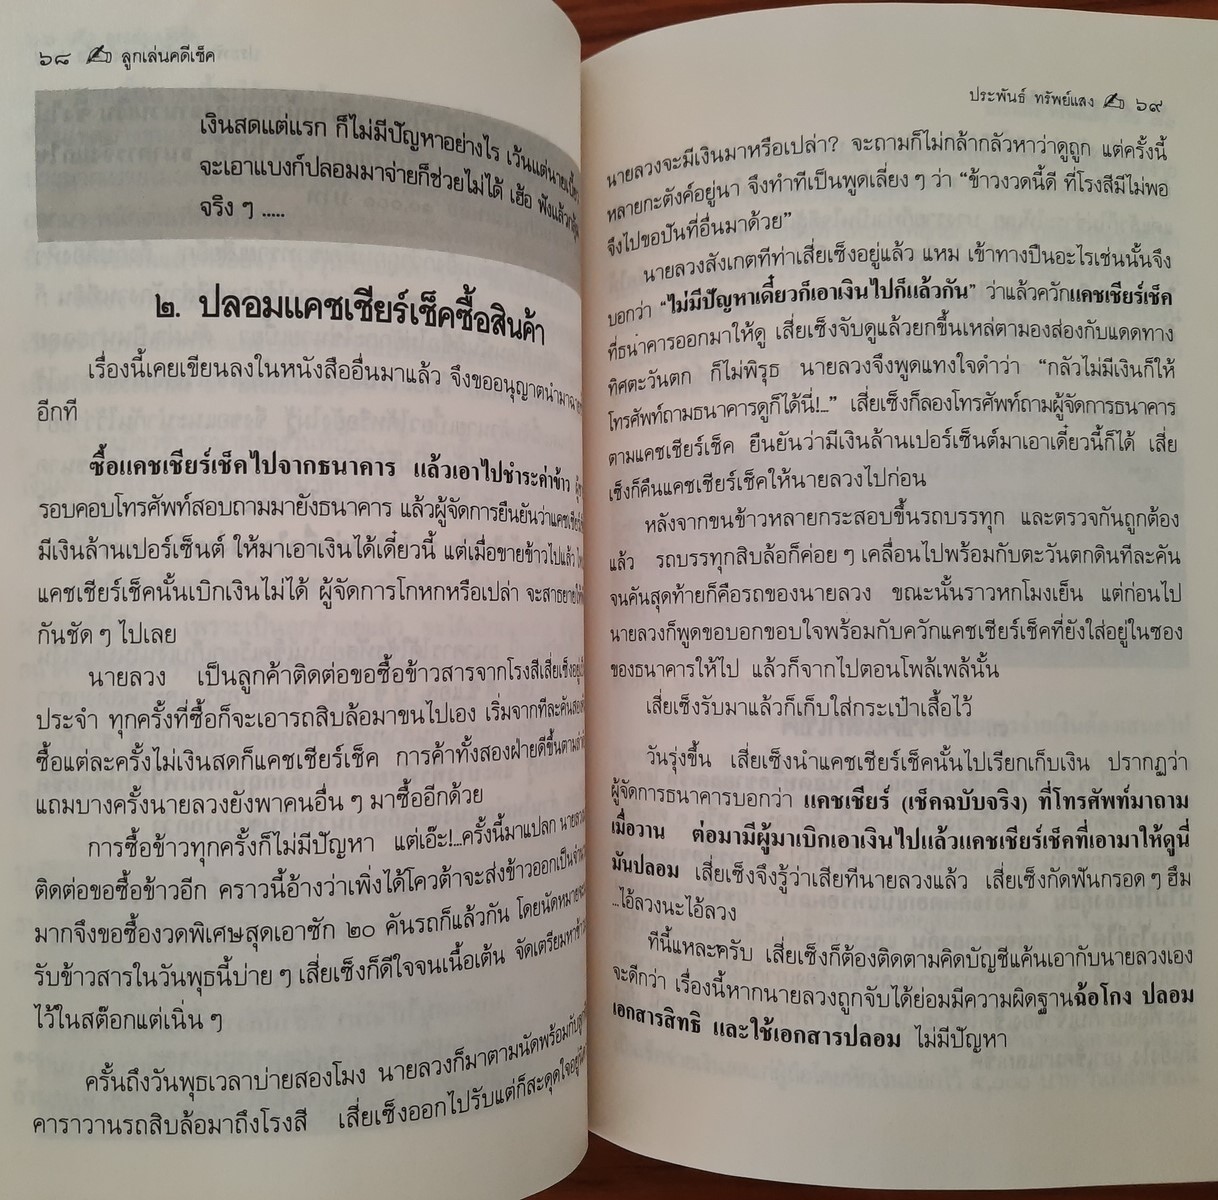 ๖๘ ลูกเล่นคดีเช็ค
เงินสดแต่แรก ก็ไม่มีปัญหาอย่างไร เว้นแต่นายเบี้ยว
จะเอาแบงก์ปลอมมาจ่ายก็ช่วยไม่ได้ เฮ้อ ฟังแล้วก
จริง ๆ .....
๒. ปลอมแคชเชียร์เช็คซื้อสินค้า
เรื่องนี้เคยเขียนลงในหนังสืออื่นมาแล้ว จึงขออนุญาตนำมาฉาย
อีกที
ซื้อแคชเชียร์เช็คไปจากธนาคาร แล้วเอาไปชำระค่าข้าว
รอบคอบโทรศัพท์สอบถามมายังธนาคาร แล้วผู้จัดการยืนยันว่าแคชเชียร์
มีเงินล้านเปอร์เซ็นต์ ให้มาเอาเงินได้เดี๋ยวนี้ แต่เมื่อขายข้าวไปแล้ว
แคชเชียร์เช็คนั้นเบิกเงินไม่ได้ ผู้จัดการโกหกหรือเปล่า จะสาธยายให้
กันชัด ๆ ไปเลย
นายลวง เป็นลูกค้าติดต่อขอซื้อข้าวสารจากโรงสีเสี่ยเซ็งอยู่
ประจำ ทุกครั้งที่ซื้อก็จะเอารถสิบล้อมาขนไปเอง เริ่มจากทีละคันสอง
ซื้อแต่ละครั้งไม่เงินสดก็แคชเชียร์เช็ค การค้าทั้งสองฝ่ายดีขึ้นตาม
แถมบางครั้งนายลวงยังพาคนอื่น ๆ มาซื้ออีกด้วย
การซื้อข้าวทุกครั้งก็ไม่มีปัญหา แต่เอ๊ะ!...ครั้งนี้มาแปลก นายลวง
ติดต่อขอซื้อข้าวอีก คราวนี้อ้างว่าเพิ่งได้โควต้าจะส่งข้าวออกเป็นจำนวน
มากจึงขอซื้องวดพิเศษสุดเอาซัก ๒๐ คันรถก็แล้วกัน โดยนัดหมายจะ
รับข้าวสารในวันพุธนี้บ่าย ๆ เสี่ยเซ็งก็ดีใจจนเนื้อเต้น จัดเตรียมหาข้าว
ไว้ในสต๊อกแต่เนิ่น ๆ
ครั้นถึงวันพุธเวลาบ่ายสองโมง นายลวงก็มาตามนัดพร้อมกับ
คาราวานรถสิบล้อมาถึงโรงสี เสี่ยเซ็งออกไปรับแต่ก็สะดุดใจอยู่
ประพันธ์ ทรัพย์แสง ๖๙
นายลวงจะมีเงินมาหรือเปล่า? จะถามก็ไม่กล้ากลัวหาว่าดูถูก แต่ครั้งนี้
หลายกะตังค์อยู่นา จึงทำทีเป็นพูดเลี่ยง ๆ ว่า “ข้าวงวดนี้ดี ที่โรงสีมีไม่พอ
จึงไปขอปันที่อื่นมาด้วย”
นายลวงสังเกตทีท่าเสี่ยเซ็งอยู่แล้ว แหม เข้าทางปืนอะไรเช่นนั้นจึง
บอกว่า “ไม่มีปัญหาเดี๋ยวก็เอาเงินไปก็แล้วกัน” ว่าแล้วควักแคชเชียร์เช็ค
ที่ธนาคารออกมาให้ดู เสี่ยเซ็งจับดูแล้วยกขึ้นเหล่ตามองส่องกับแดดทาง
ทิศตะวันตก ก็ไม่พิรุธ นายลวงจึงพูดแทงใจดำว่า “กลัวไม่มีเงินก็ให้
โทรศัพท์ถามธนาคารดูก็ได้นี่!...” เสี่ยเซ็งก็ลองโทรศัพท์ถามผู้จัดการธนาคาร
ตามแคชเชียร์เช็ค ยืนยันว่ามีเงินล้านเปอร์เซ็นต์มาเอาเดี๋ยวนี้ก็ได้ เสี่ย
เซ็งก็คืนแคชเชียร์เช็คให้นายลวงไปก่อน
หลังจากขนข้าวหลายกระสอบขึ้นรถบรรทุก และตรวจกันถูกต้อง
แล้ว รถบรรทุกสิบล้อก็ค่อย ๆ เคลื่อนไปพร้อมกับตะวันตกดินทีละคัน
จนคันสุดท้ายก็คือรถของนายลวง ขณะนั้นราวหกโมงเย็น แต่ก่อนไป
นายลวงก็พูดขอบอกขอบใจพร้อมกับควักแคชเชียร์เช็คที่ยังใส่อยู่ในซอง
ของธนาคารให้ไป แล้วก็จากไปตอนโพล้เพล้นั้น
เสี่ยเซ็งรับมาแล้วก็เก็บใส่กระเป๋าเสื้อไว้
วันรุ่งขึ้น เสี่ยเซ็งนำแคชเชียร์เช็คนั้นไปเรียกเก็บเงิน ปรากฏว่า
ผู้จัดการธนาคารบอกว่า แคชเชียร์ (เช็คฉบับจริง) ที่โทรศัพท์มาถาม
เมื่อวาน ต่อมามีผู้มาเบิกเอาเงินไปแล้วแคชเชียร์เช็คที่เอามาให้ดูนี่
มันปลอม เสี่ยเซ็งจึงรู้ว่าเสียทีนายลวงแล้ว เสี่ยเซ็งกัดฟันกรอด ๆ ฮึม
...ไอ้ลวงนะไอ้ลวง
ทีนี้แหละครับ เสี่ยเซ็งก็ต้องติดตามคิดบัญชีแค้นเอากับนายลวงเอง
จะดีกว่า เรื่องนี้หากนายลวงถูกจับได้ย่อมมีความผิดฐานฉ้อโกง ปลอม
เอกสารสิทธิ และใช้เอกสารปลอม ไม่มีปัญหา